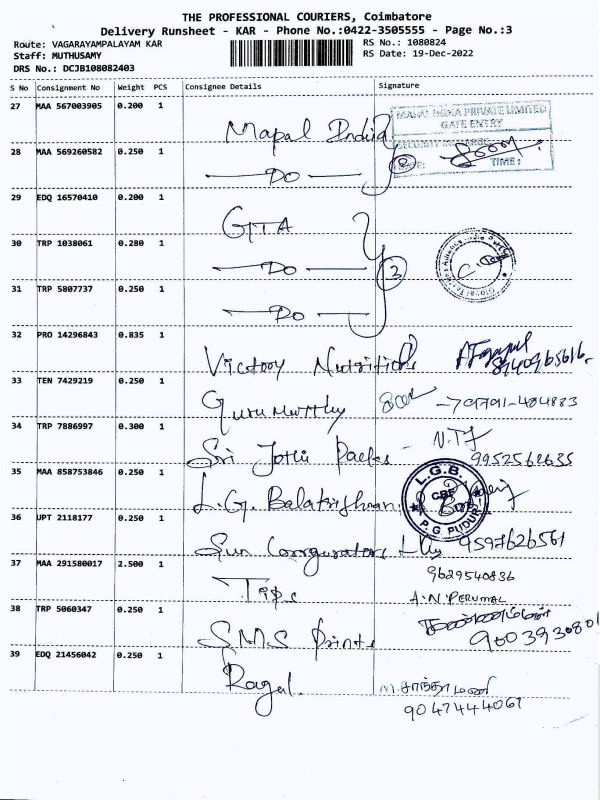 THE PROFESSIONAL COURIERS, Coimbatore
Delivery Runsheet - KAR - Phone No.:0422-3505555 - Page No.:3
Route: VAGARAYAMPALAYAM KAR
RS No.: 1080824
Staff: MUTHUSAMY
RS Date: 19-Dec-2022
DRS No.: DCJB108082403
S No Consignment No Weight PCS Consignee Details Signature
27 MAA 567003905 0.200 1
MAPAL INDIA PRIVATE LIMITED
GATE ENTRY
Mapal India
SECURITY
28 MAA 569260582 0.250 1
DATE: TIME:
Do
2
29 EDQ 16570410 0.200 1
GITA
30 TRP 1038061 0.280 1
Do
3
31 TRP 5807737 0.250 1
Do
32 PRO 14296843 0.835 1
Victory Nutritions
8940965616
33 TEN 7429219 0.250 1
Gurumurthy
9791-484883
34 TRP 7886997 0.300 1
N.TJ
Sri Jothi
9952562635
35 MAA 858753846 0.250 1
L.G.B.
CBE
P.G PUDUR
L.G. Balakrishnan
36 UPT 2118177 0.250 1
Sun
9597626561
37 MAA 291580017 2.500 1
9629540836
Tips
A.N PERUMAL
38 TRP 5060347 0.250 1
S.M.S Prints
9003930801
39 EDQ 21456042 0.250 1
Ragal.
9047444061